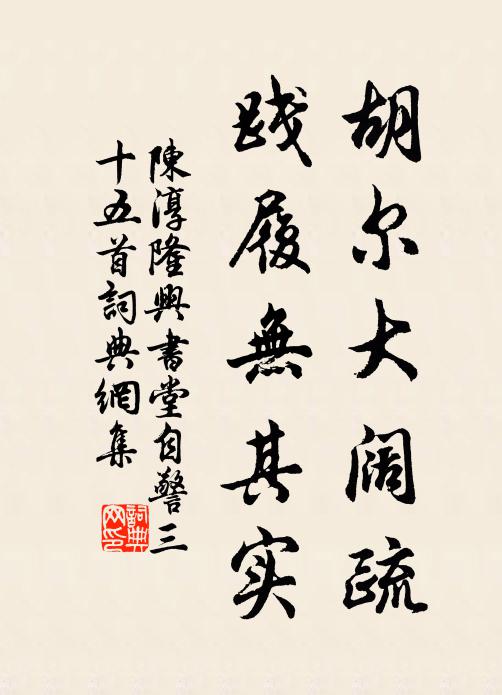 胡尔大阔疏
践履無其实
陳淳隆興書堂自警三
十五首詞典網集
詞典网印